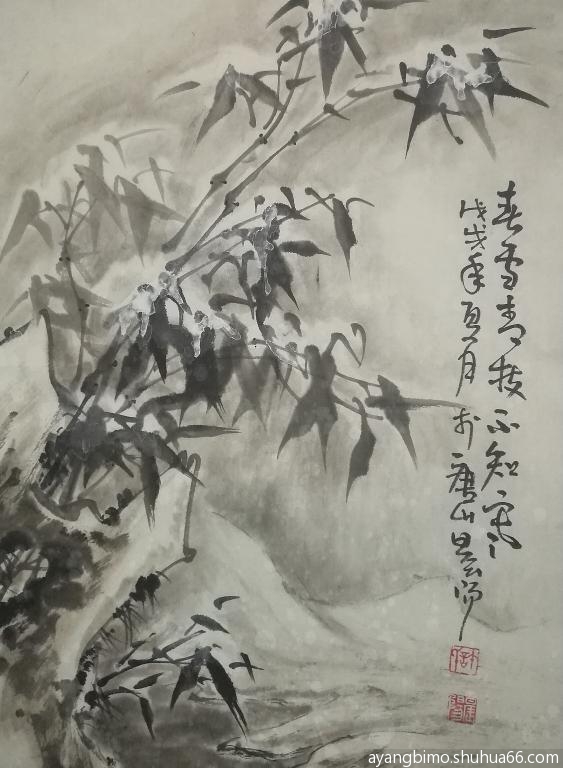 春雪青枝不知寒
戊戌年夏月於唐山
ayangbimo.shuhua66.com